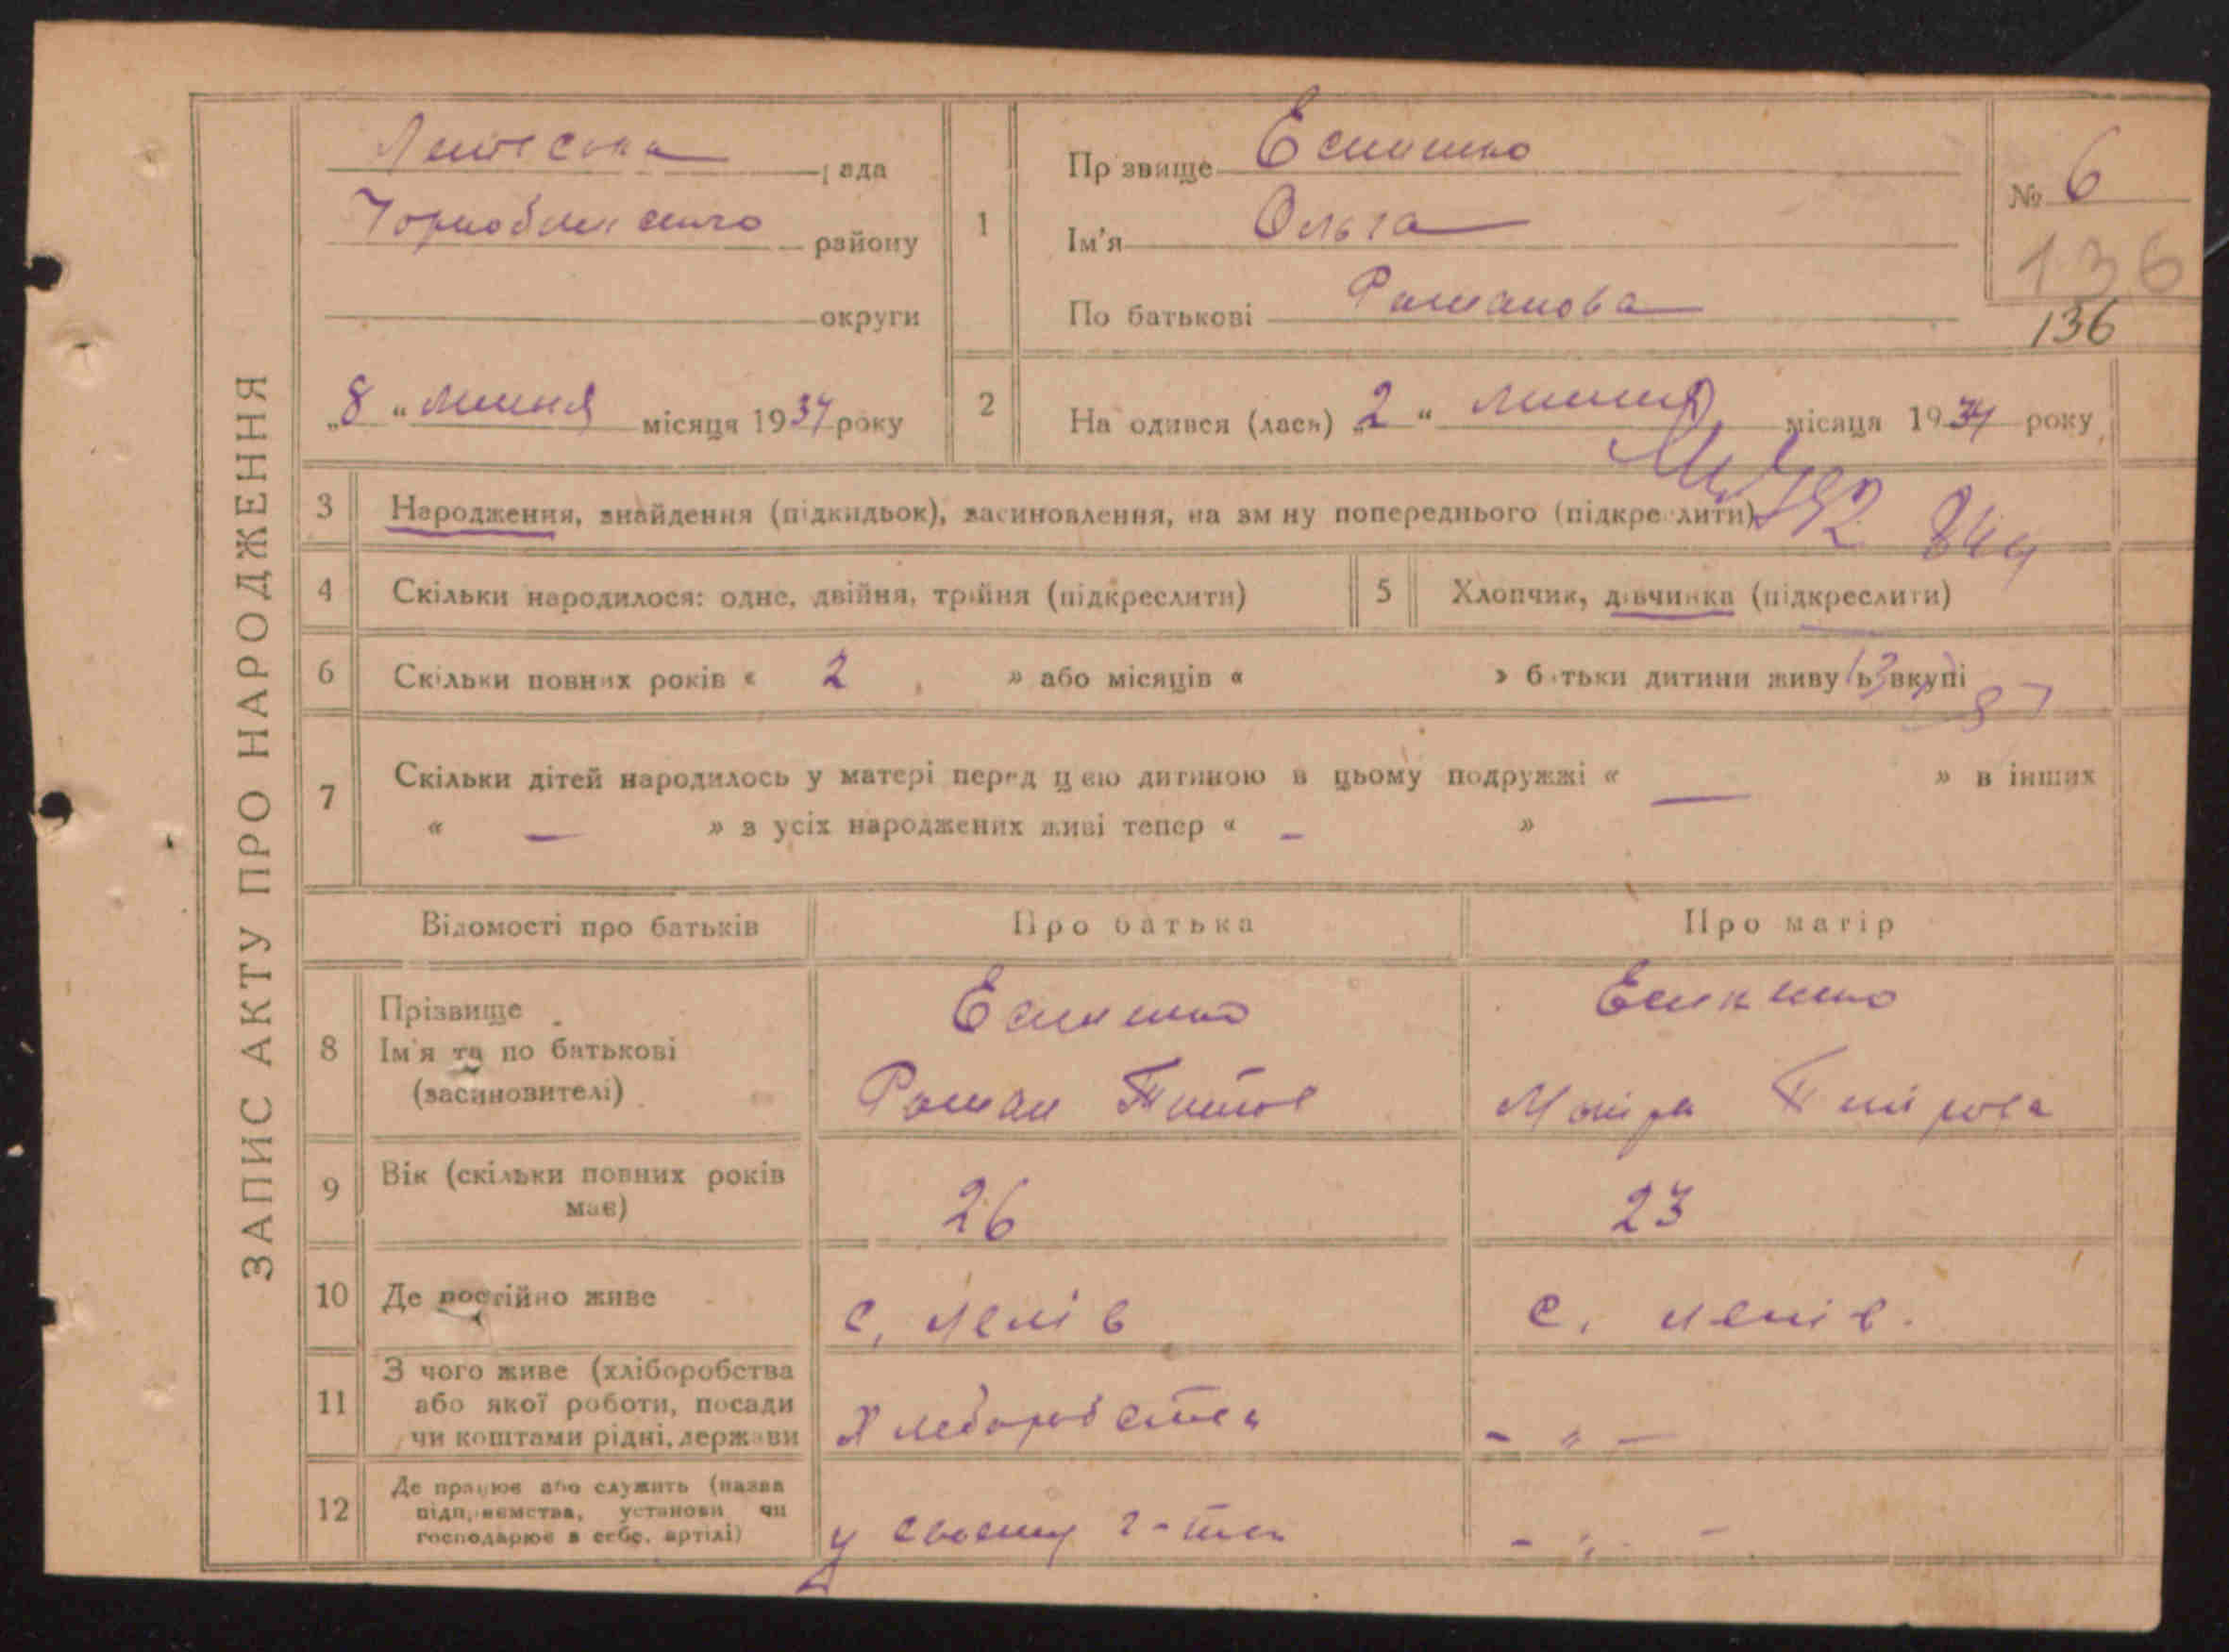 ЗАПИС АКТУ ПРО НАРОДЖЕННЯ
рада
Чорнобильського району
округи
„8“ липня місяця 1934 року
1
Прізвище Есипенко
Ім'я Ольга
По батькові Романова
№ 6
136
136
2 Народився (лася) „2“ липня місяця 1934 року
3 Народження, знайдення (підкидьок), засиновлення, на зміну попереднього (підкреслити)
4 Скільки народилося: одне, двійня, трійня (підкреслити)
5 Хлопчик, дівчинка (підкреслити)
6 Скільки повних років « 2 » або місяців « » батьки дитини живуть вкупі
7 Скільки дітей народилось у матері перед цею дитиною в цьому подружжі « — » в інших
« — » з усіх народжених живі тепер « – »
Відомості про батьків Про батька Про матір
8 Прізвище
Ім'я та по батькові
(засиновителі)
Роман Титов
9 Вік (скільки повних років
має)
26 23
10 Де постійно живе с. Лелів с. Лелів.
11 З чого живе (хліборобства
або якої роботи, посади
чи коштами рідні, держави
- " -
12 Де працює або служить (назва
підприємства, установи чи
господарює в себе, артілі)
у своему г-тві - " -